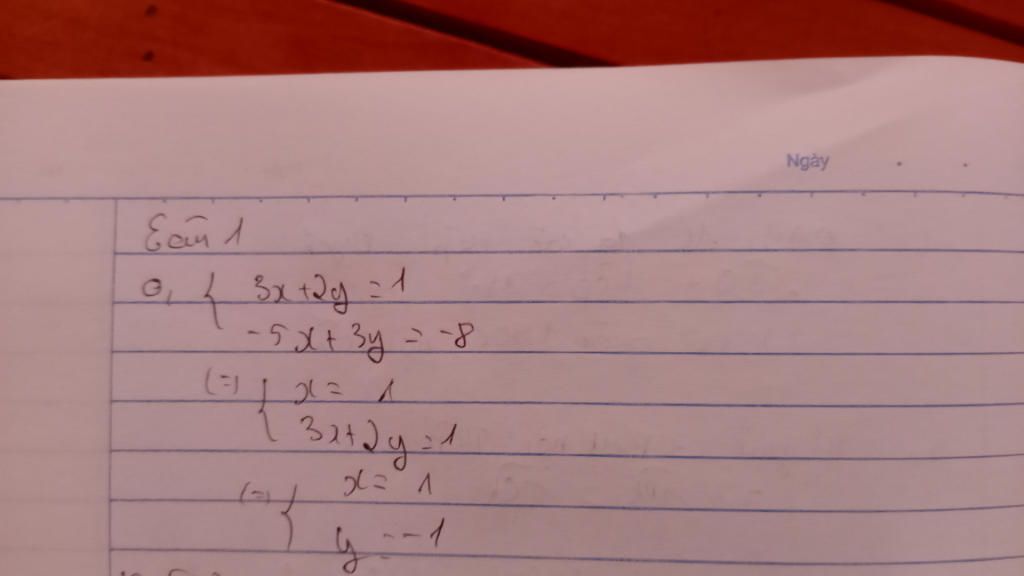 Ngày
Câu 1
a, { 3x+2y=1
-5x+3y=-8
(=) { x= 1
3x+2y=1
(=) { x= 1
y=-1